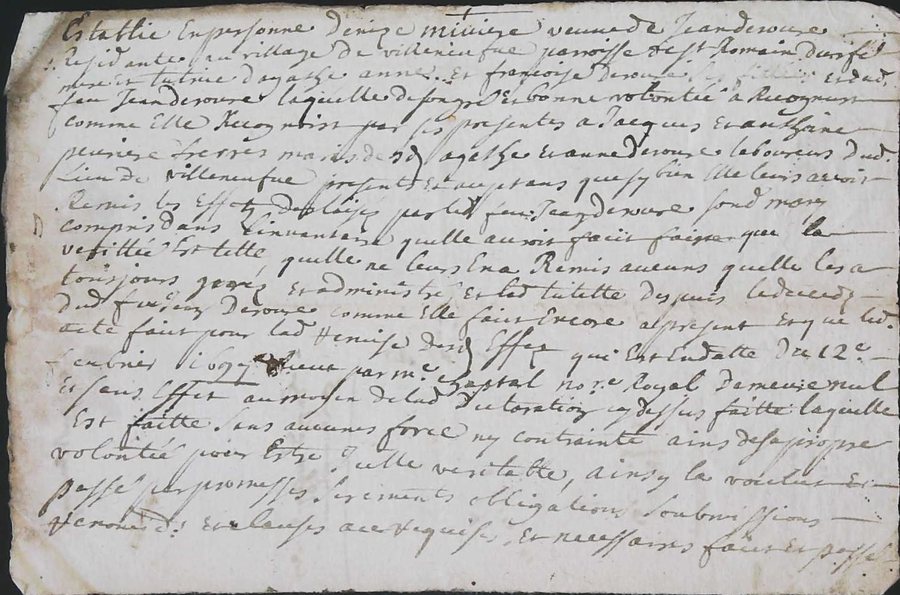 Establie En personne denize miviere veuve de Jean deroure
Residante au village de villeneufve parroisse de st Romain
mere et tutrice dagathe anne Et francoise deroure ses filles Et dud
feu Jean deroure laquelle de son gre Et bonne volontée a Recognu
comme Elle Recognoist par ses presentes a Jacques Et anthoine
freres maris desd agathe Et anne deroure laboureurs dud
Lieu de villeneufve presents Et aceptans que sy bien Elle leurs avoit
Remis les Effetz delaisses par led feu Jean deroure sond mary
compris dans Linventaire quelle auroit faiit faire que la
verittée Est telle quelle ne leurs En a Remis aucuns quelle les a
tousjours geres Et administré Et lad tutelle despuis le deceds
dud feu Jean Deroure comme Elle fait Encore apresent Et que led
acte fait pour lad Remise desd Effetz qui Est En datte du 12e
febvrier 1697 Receu par me Chaptal nore Royal Demeure nul
Et sans Effet au moyen de lad Declaration cy dessus faitte laquelle
Est faitte sans aucune force ny contrainte ains de sa propre
volontée pour Estre telle veritable, ainsy la voulut Et
passé par promesses serements obligations soubmissions
Renonceds Et clauses a ce Requises Et necessaires fait Et passé